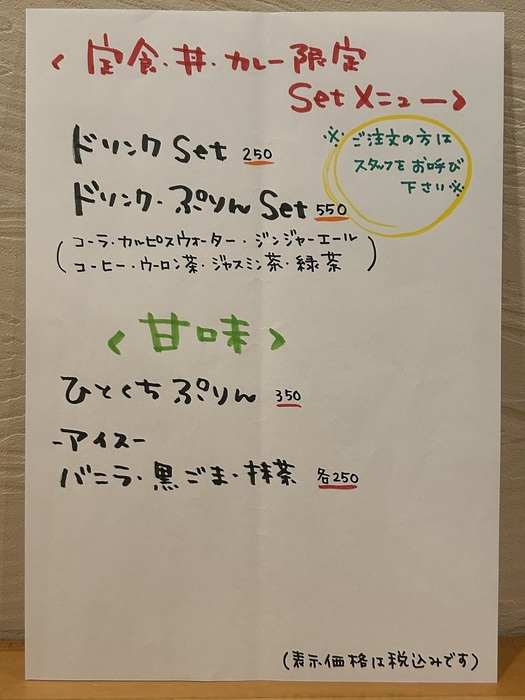 <定食・丼・カレー限定
Setメニュー>
※ご注文の方は
スタッフをお呼び
下さい※
ドリンクSet 250
ドリンク・ぷりんSet 550
(コーラ・カルピスウォーター・ジンジャーエール
コーヒー・ウーロン茶・ジャスミン茶・緑茶)
<甘味>
ひとくちぷりん 350
-アイス-
バニラ・黒ごま・抹茶 各250
(表示価格は税込みです)